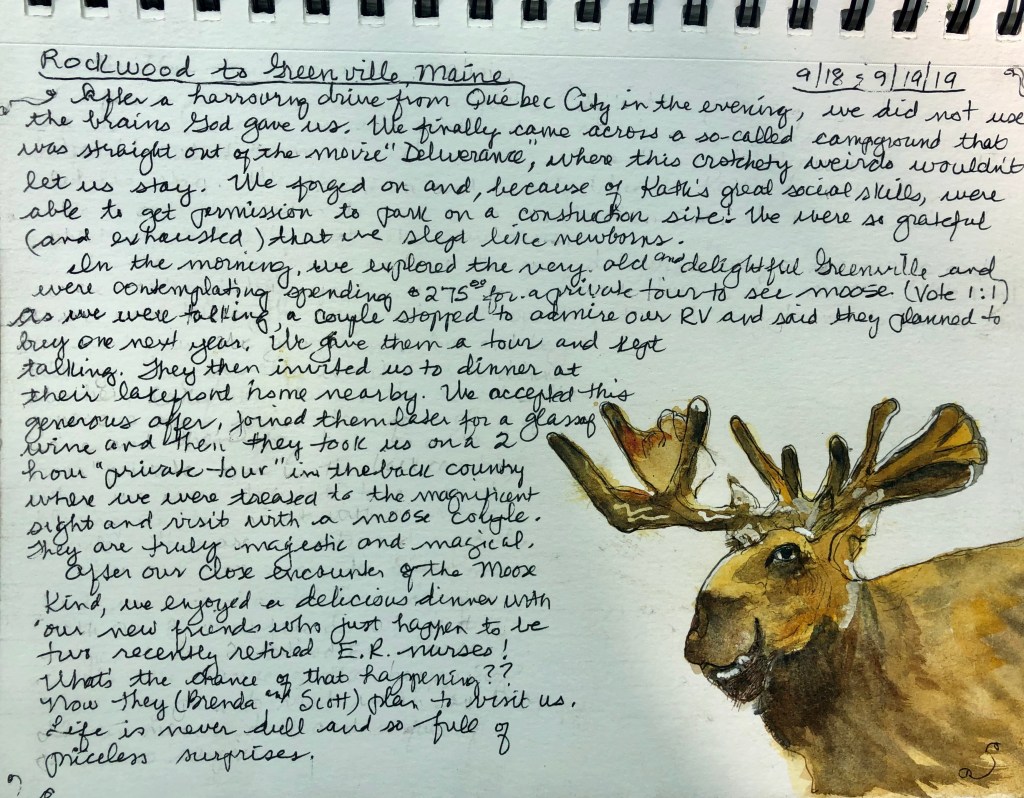 Rockwood to Greenville, Maine
9/18 & 9/19/19
After a harrowing drive from Québec City in the evening, we did not use
the brains God gave us. We finally came across a so-called campground that
was straight out of the movie "Deliverance", where this crotchety weirdo wouldn't
let us stay. We forged on and, because of Kath's great social skills, were
able to get permission to park on a construction site. We were so grateful
(and exhausted) that we slept like newborns.
In the morning, we explored the very old and delightful Greenville and
were contemplating spending $275.00 for a private tour to see moose. (Vote 1:1)
As we were talking, a couple stopped to admire our RV and said they planned to
buy one next year. We gave them a tour and kept
talking. They then invited us to dinner at
their lakefront home nearby. We accepted this
generous offer, joined them later for a glass of
wine and then they took us on a 2
hour "private tour" in the back county
where we were treated to the magnificent
sight and visit with a moose couple.
They are truly majestic and magical.
After our close encounter of the Moose
Kind, we enjoyed a delicious dinner with
our new friends who just happen to be
two recently retired E.R. nurses!
What's the chance of that happening??
Now they (Brenda and Scott) plan to visit us.
Life is never dull and so full of
priceless surprises.